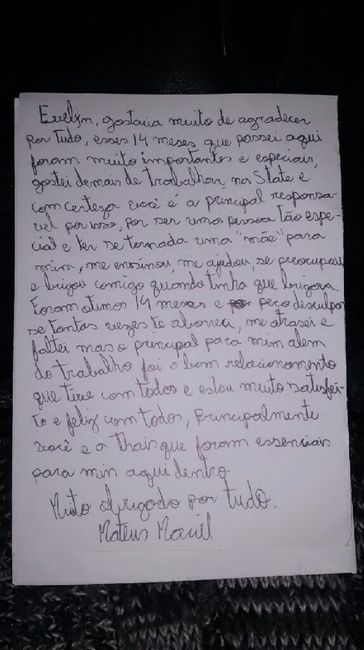 Evelyn, gostaria muito de agradecer
por tudo, esses 14 meses que passei aqui
foram muito importantes e especiais,
gostei demais de trabalhar na Slate e
com certeza você é a principal responsa-
vel por isso, por ser uma pessoa tão espe-
cial e ter se tornada uma "mãe" para
mim, me ensinou, me ajudou, se preocupou
e brigou comigo quando tinha que brigar.
Foram otimos 14 meses e peço desculpas
se tantas vezes te aborreci, me atrasei e
faltei mas o principal para mim alem
do trabalho foi o bom relacionamento
que tive com todos e estou muito satisfei-
to e feliz com todos, Principalmente
você e a Thais que foram essenciais
para min aqui dentro.
Muto obrigado por tudo.
Mateus Maciel